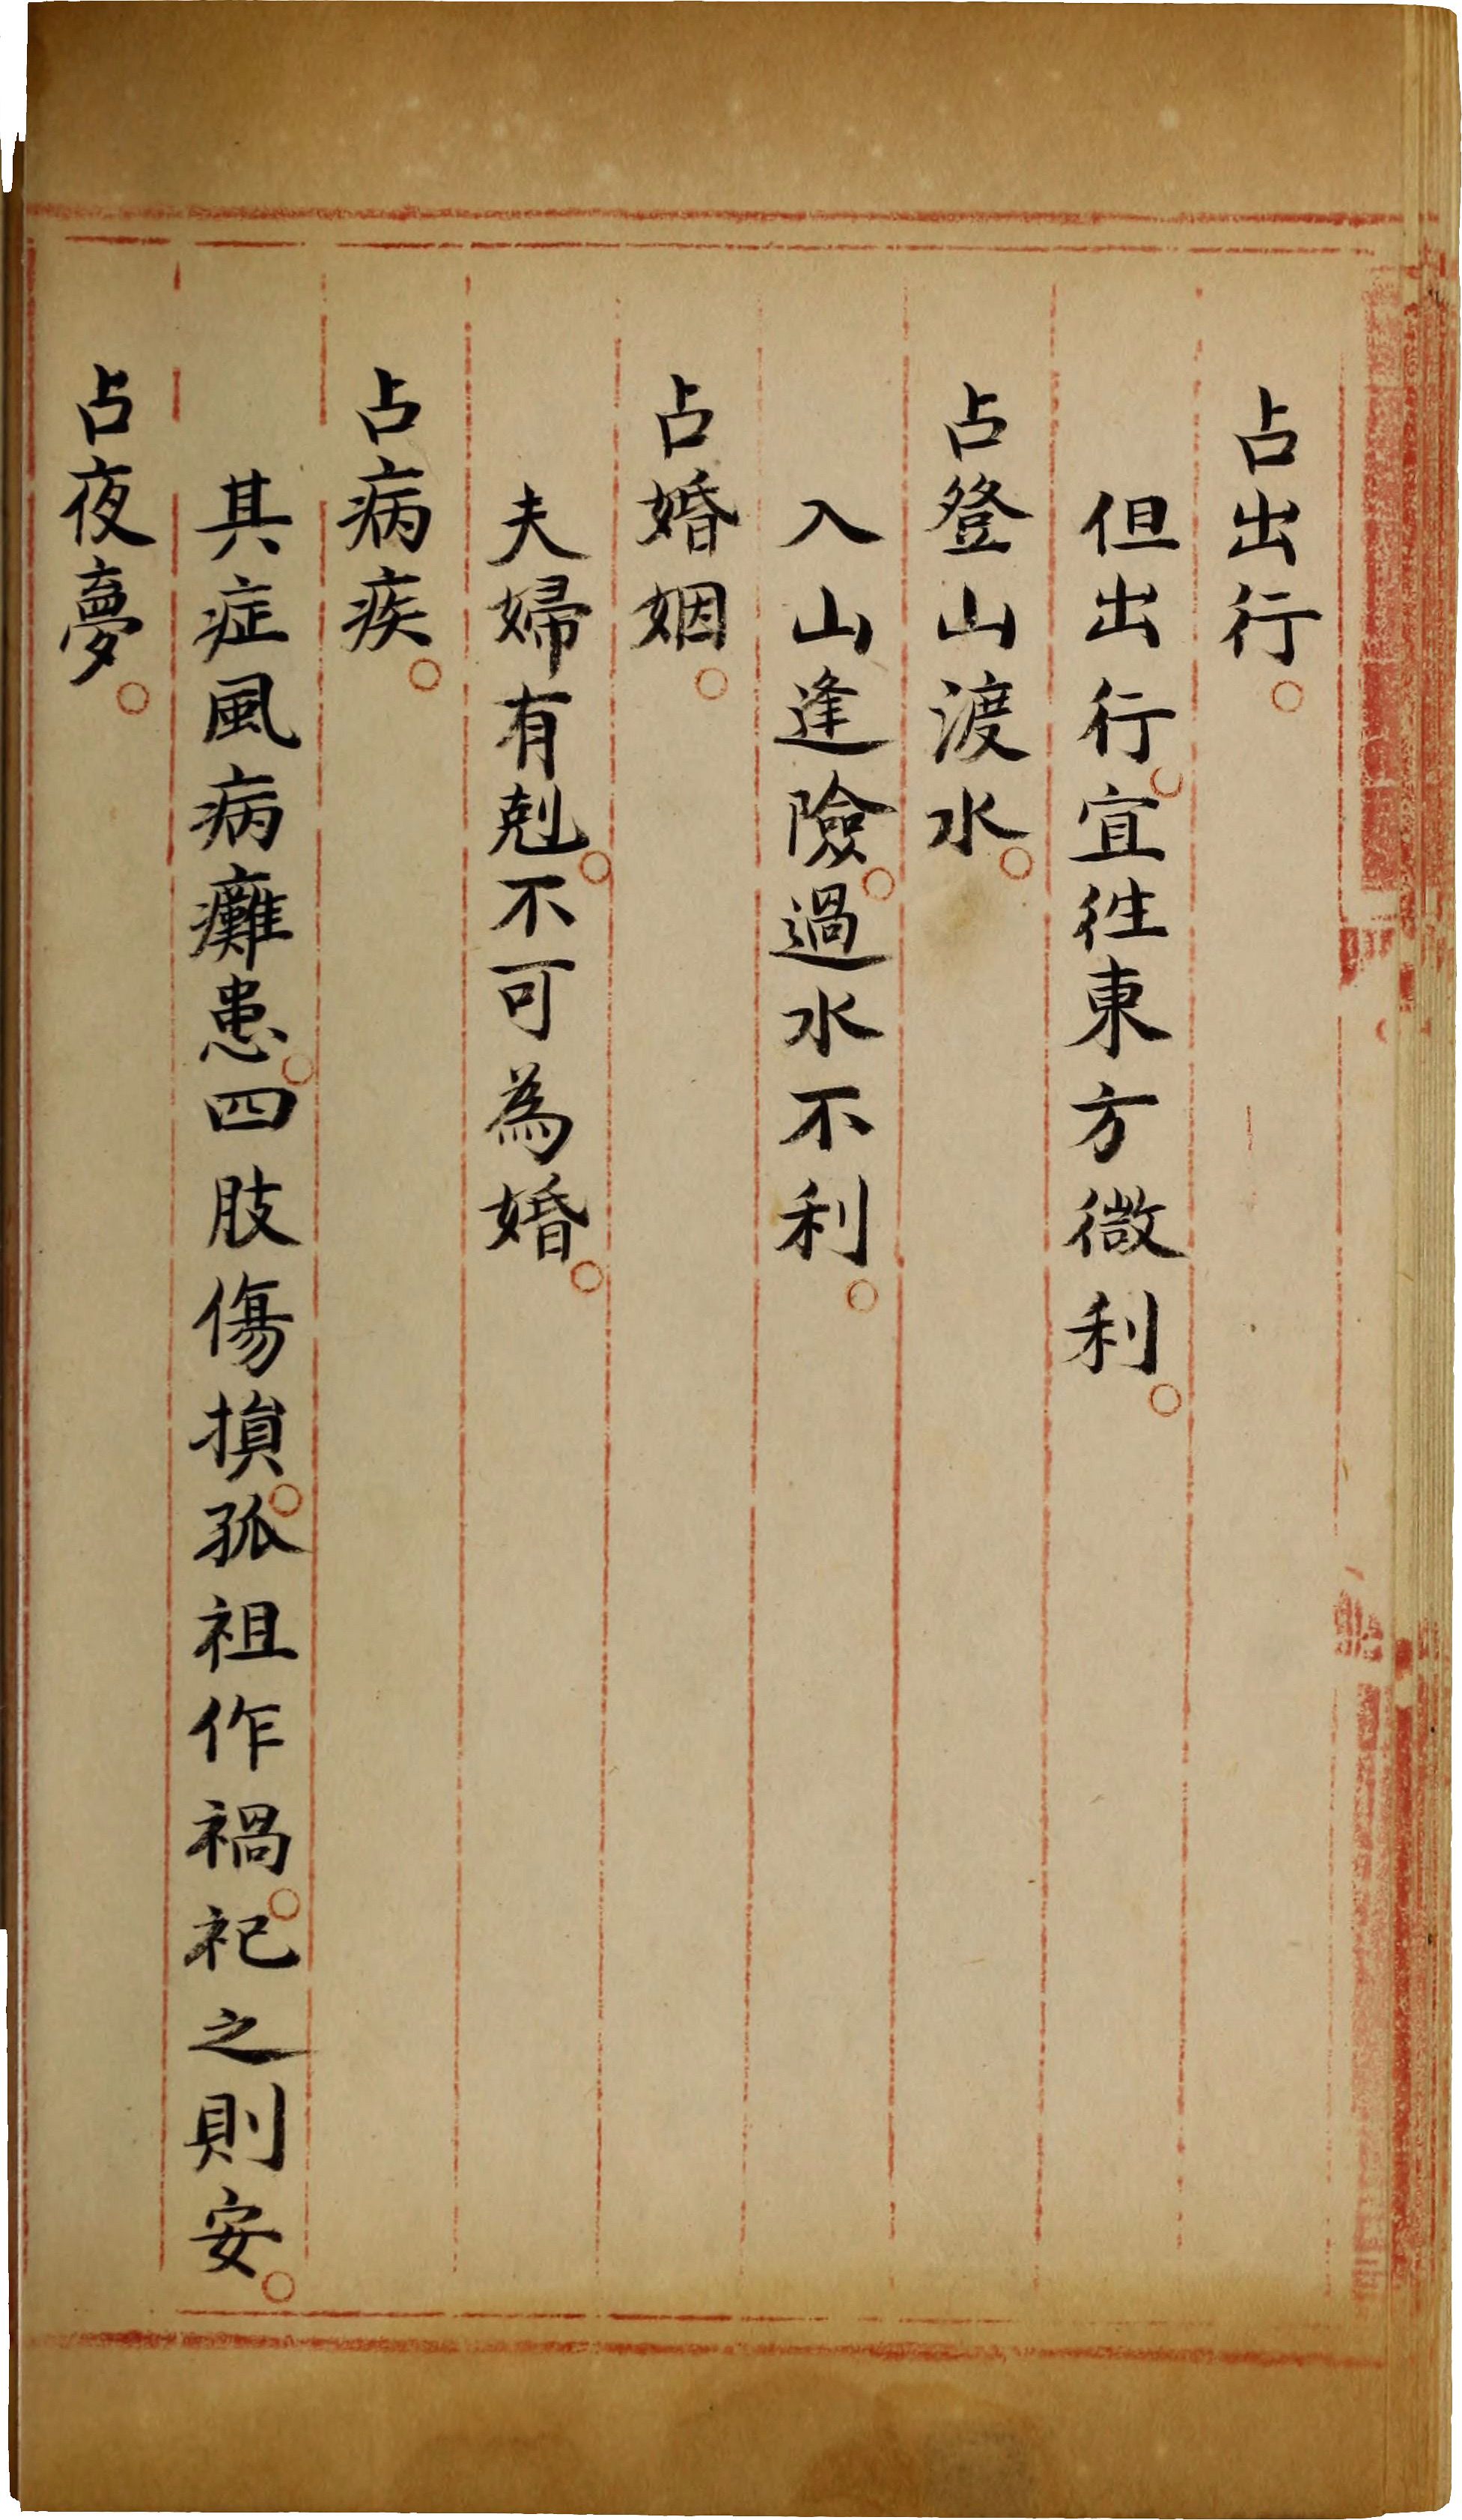 占出行。
但出行。宜徃東方微利。
占登山渡水。
入山逢險。過水不利。
占婚姻。
夫婦有剋。不可為婚。
占病疾。
其症風病癱患。四肢傷損。孤祖作禍。祀之則安。
占夜夢。